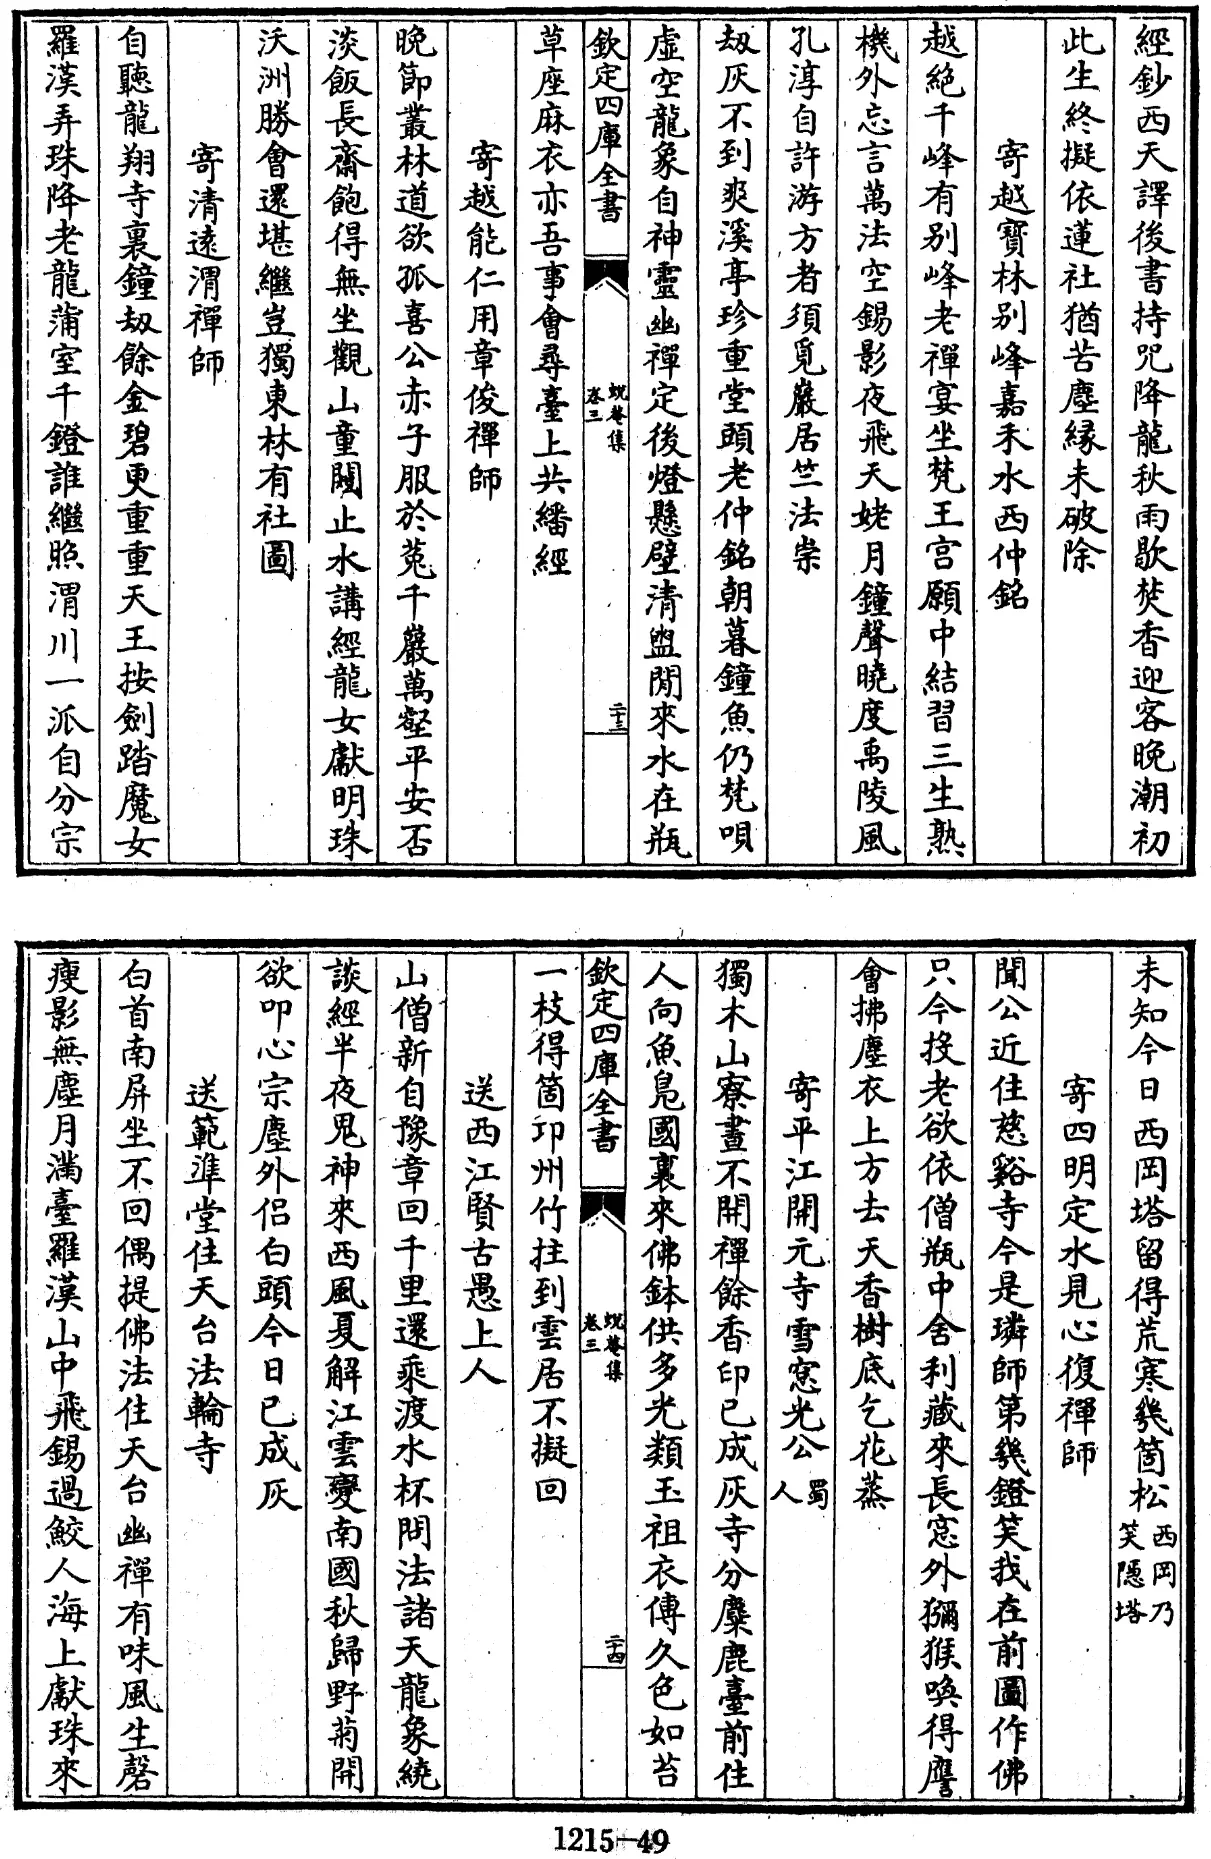 經鈔西天譯後書持咒降龍秋雨歇焚香迎客晚潮初
此生終擬依蓮社猶苦塵縁未破除
寄越寶林别峰嘉禾水西仲銘
越絶千峰有别峰老禪宴坐梵王宫願中結習三生熟
機外忘言萬法空錫影夜飛天姥月鐘聲曉度禹陵風
孔淳自許游方者須覓巖居竺法崇
刼灰不到爽溪亭珍重堂頭老仲銘朝暮鐘魚仍梵唄
虚空龍象自神靈幽禪定後燈懸壁清盥閒來水在瓶
欽定四庫全書
蛻菴集
卷三
二十三
草座麻衣亦吾事會尋臺上共繙經
寄越能仁用章俊禪師
晚節叢林道欲孤喜公赤子服於菟千巖萬壑平安否
淡飯長齋飽得無坐觀山童閱止水講經龍女獻明珠
沃洲勝會還堪繼豈獨東林有社圖
寄清遠渭禪師
自聽龍翔寺裏鐘刼餘金碧更重重天王按劍踏魔女
羅漢弄珠降老龍蒲室千鐙誰繼照渭川一派自分宗
未知今日西岡塔留得荒寒幾箇松西岡乃笑隱塔
寄四明定水見心復禪師
聞公近住慈谿寺今是璘師第幾鐙笑我在前圖作佛
只今投老欲依僧瓶中舍利藏來長窓外獼猴喚得譍
會拂塵衣上方去天香樹底乞花蒸
寄平江開元寺雪窓光公蜀人
獨木山寮晝不開禪餘香印已成灰寺分麋鹿臺前住
人向魚鳬國裏來佛鉢供多光類玉祖衣傳久色如苔
欽定四庫全書
蛻菴集
卷三
二十四
一枝得箇卭州竹拄到雲居不擬回
送西江賢古愚上人
山僧新自豫章回千里還乘渡水杯問法諸天龍象繞
談經半夜鬼神來西風夏解江雲變南國秋歸野菊開
欲叩心宗塵外侣白頭今日已成灰
送範準堂住天台法輪寺
白首南屏坐不回偶提佛法住天台幽禪有味風生磬
瘦影無塵月滿臺羅漢山中飛錫過鮫人海上獻珠來
1215-49